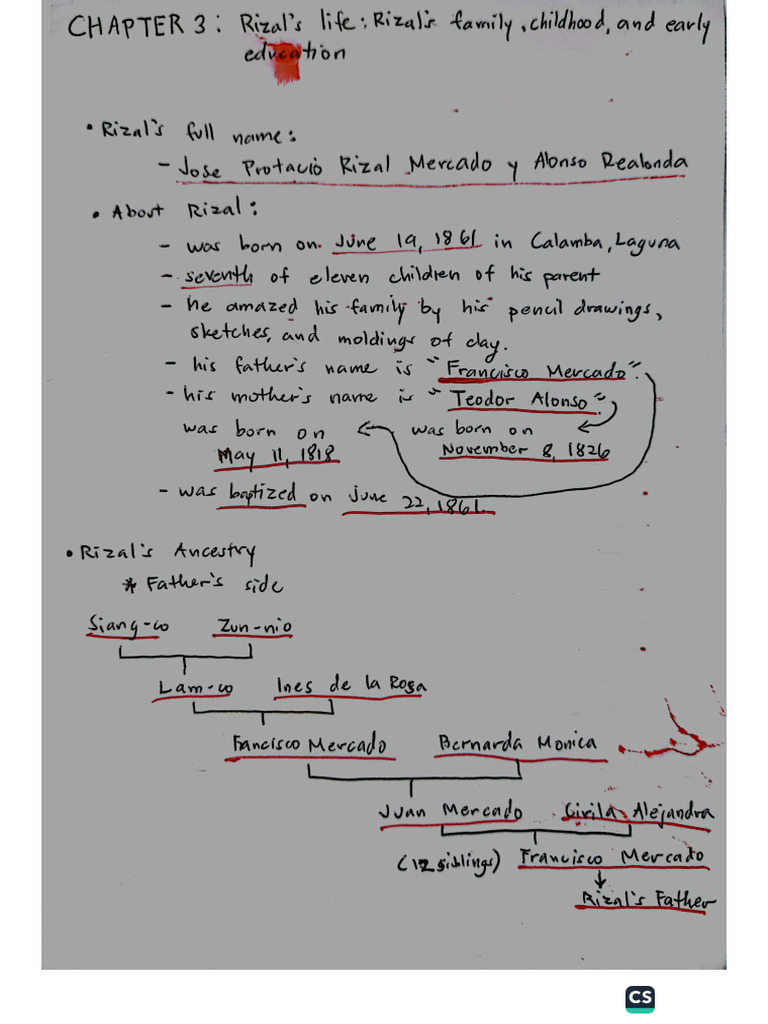 CHAPTER 3: Rizal's life: Rizal's family, childhood, and early
education
• Rizal's full name:
- Jose Protacio Rizal Mercado y Alonso Realonda
• About Rizal:
- was born on June 19, 1861 in Calamba, Laguna
- seventh of eleven children of his parent
- he amazed his family by his pencil drawings,
sketches, and moldings of clay.
- his father's name is "Francisco Mercado".
- his mother's name is "Teodor Alonso".
was born on was born on
May 11, 1818 November 8, 1826
- was baptized on june 22, 1861.
• Rizal's Ancestry
* Father's side
Siang-co Zun-nio
Lam-co Ines de la Rosa
Fancisco Mercado Bernarda Monica
Juan Mercado Cirila Alejandra
(12 siblings) Francisco Mercado
Rizal's Father
CS